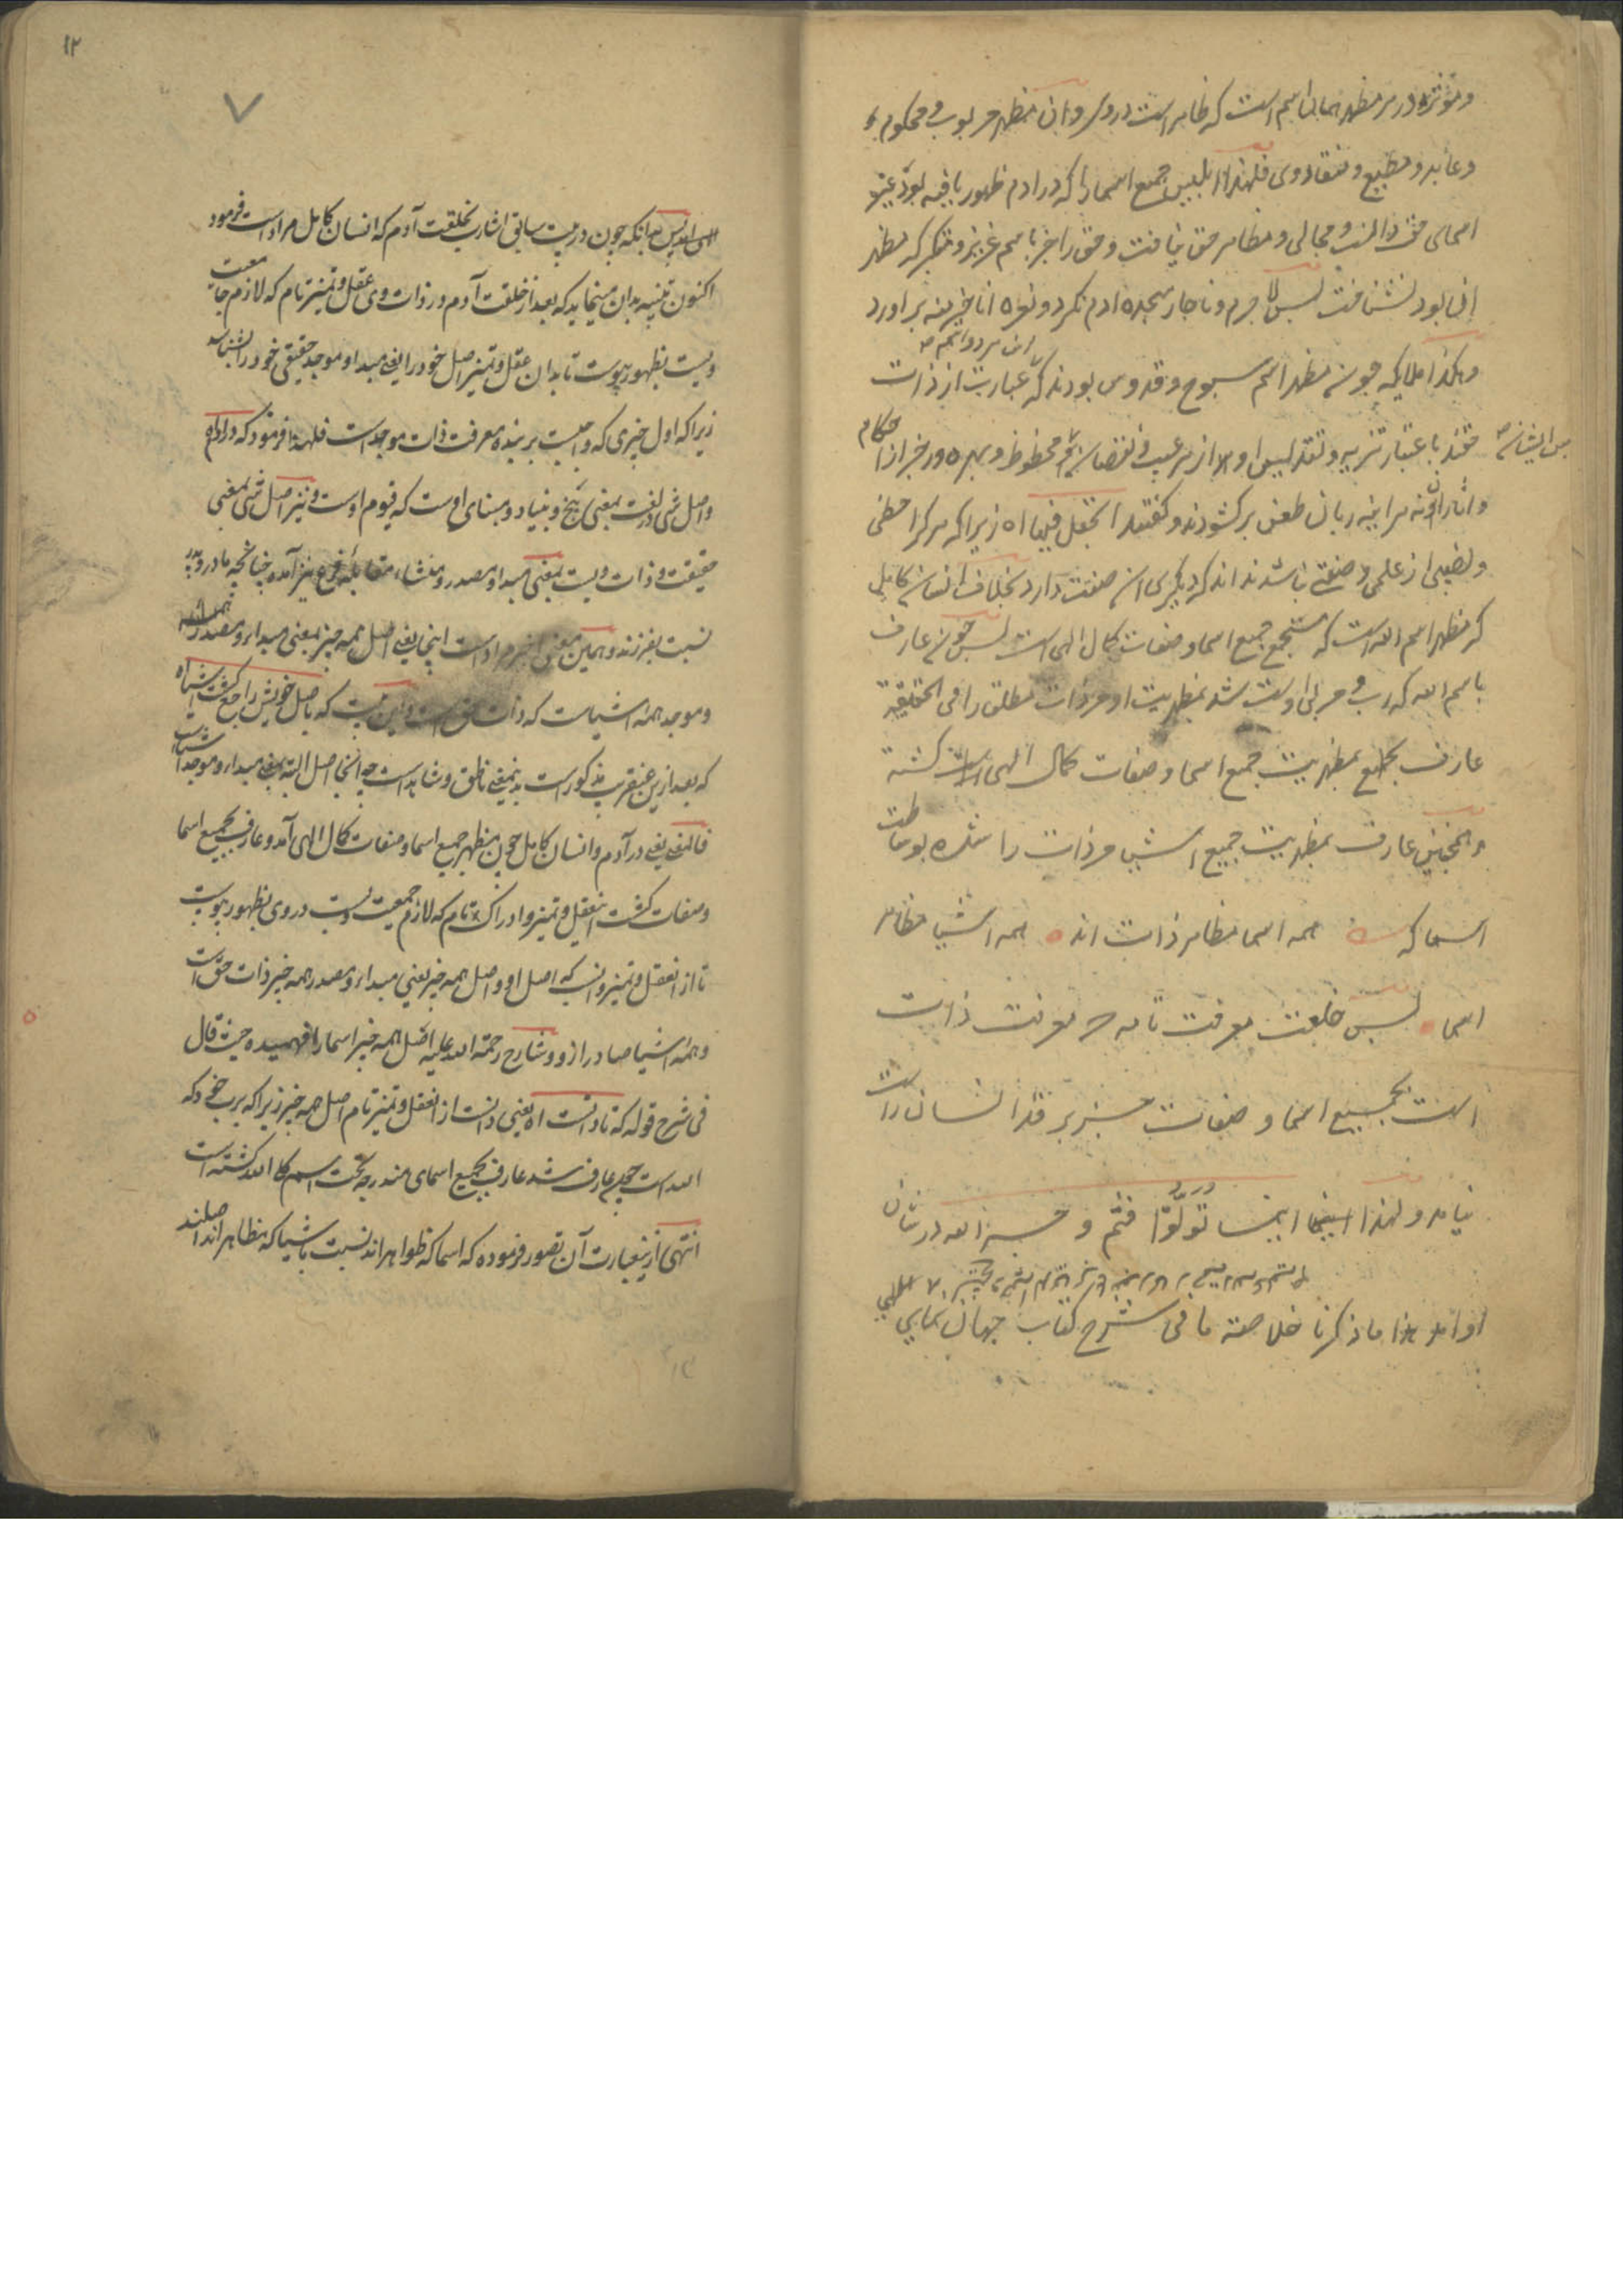 و مؤثره در هر مظهر همان اسم است که ظاهر است در وی و ان مظهر مربوب و محکوم
و عابد و مطیع و منقاد وی فلهذا ابلیس جمیع اسما را که در ادم ظهور یافته بود غیر
اسمای حق دانست و مجالی و مظاهر حق نیافت و حق را جز باسم عزیز و متکبر که مظهر
ان بود نشناخت پس لاجرم و ناچار سجده ادم نکرد و نعره انا خیر منه براورد
این هر دو اسم
و هکذا ملایکه چون مظهر اسم سبوح و قدوس بودند که عبارت از ذات
حقند باعتبار تنزیه و تقدیس او از هر عیب و نقصان محظوظ و بهره ور جز از احکام
پس ایشان
و اثار زبان طعن برکشودند و کفتند اتجعل فیها اه زیرا که هرکرا حظی
و نصیبی از علمی و صفتی باشد نداند که دیکری ان صفت دارد بخلاف انسان کامل
که مظهر اسم الله است که مستجمع جمیع اسما و صفات کمال الهی است پس چون عارف
باسم الله که رب و مربی اوست شد بمظهریت او مر ذات مطلق را فی الحقیقة
عارف بجمیع بمظهریت جمیع اسما و صفات کمال الهی کشته
و همچنین عارف بمظهریت جمیع اشیا مر ذات را شده بوساطت
اسما که همه اسما مظاهر ذات اند همه اشیا مظاهر
اسما پس خلعت معرفت تامه که معرفت ذات
است بجمیع اسما و صفات جز بر قد انسان راست
نیامد و لهذا اینما تولوا فثم وجه الله در شان
او امد هذا ما ذکرنا خلاصة ما فی شرح کتاب جهان نمای
۱۲
۷
بدانکه چون در بیت سابق اشارت بخلقت آدم که انسان کامل مراد است فرمود
اکنون تنبیه بدان مینماید که بعد از خلقت آدم در ذات وی عقل و تمیز تام که لازم جامعیت
ویست بظهور پیوست تا بدان عقل و تمیز اصل خود را یعنی مبدا و موجد حقیقی خود را بشناسد
زیرا که اول چیزی که واجبست بر بنده معرفت ذات موجد است فلهذا فرمود که
و اصل شی در لغت بمعنی بیخ و بنیاد و مبنای اوست که قیوم اوست و نیز اصل شی بمعنی
حقیقت و ذات ویست بمعنی مبدا و مصدر و منشاء مقابله فرع نیز آمده چنانچه مادر و پدر
نسبت بفرزند و همین معنی اخیر مراد است اینجا یعنی اصل همه چیز بمعنی مبداء و مصدر
و موجد همه اشیاست که ذات حق است و این بیت که باصل خویش راجع کشت اشیاء
که بعد ازین عنقریب مذکور است بدینمعنی ناطق و شاهد است چه آنجا اصل البته بمعنی مبداء و موجد اشیاست
فالمعنی یعنی در آدم و انسان کامل چون مظهر جمیع اسما و صفات کمال الهی آمد و عارف بجمیع اسما
و صفات کشت این عقل و تمیز و ادراک تام که لازم جمعیت ویست در وی بظهور پیوست
تا از ان عقل و تمیز دانست که اصل او و اصل همه چیز یعنی مبداء و مصدر همه چیز ذات حق است
و همه اشیا صادر از و و شارح رحمة الله علیه اصل همه چیز اسما را فهمیده حیث قال
فی شرح قوله که تا دانست اه یعنی دانست از ان عقل و تمیز تام اصل همه چیز زیرا که برب خود که
الله است چون عارف شد عارف بجمیع اسمای مندرجه تحت اسم الله کشته است
انتهی ازین عبارت آن تصور فرموده که اسما که ظواهراند نسبت باشیا که مظاهراند اصلند